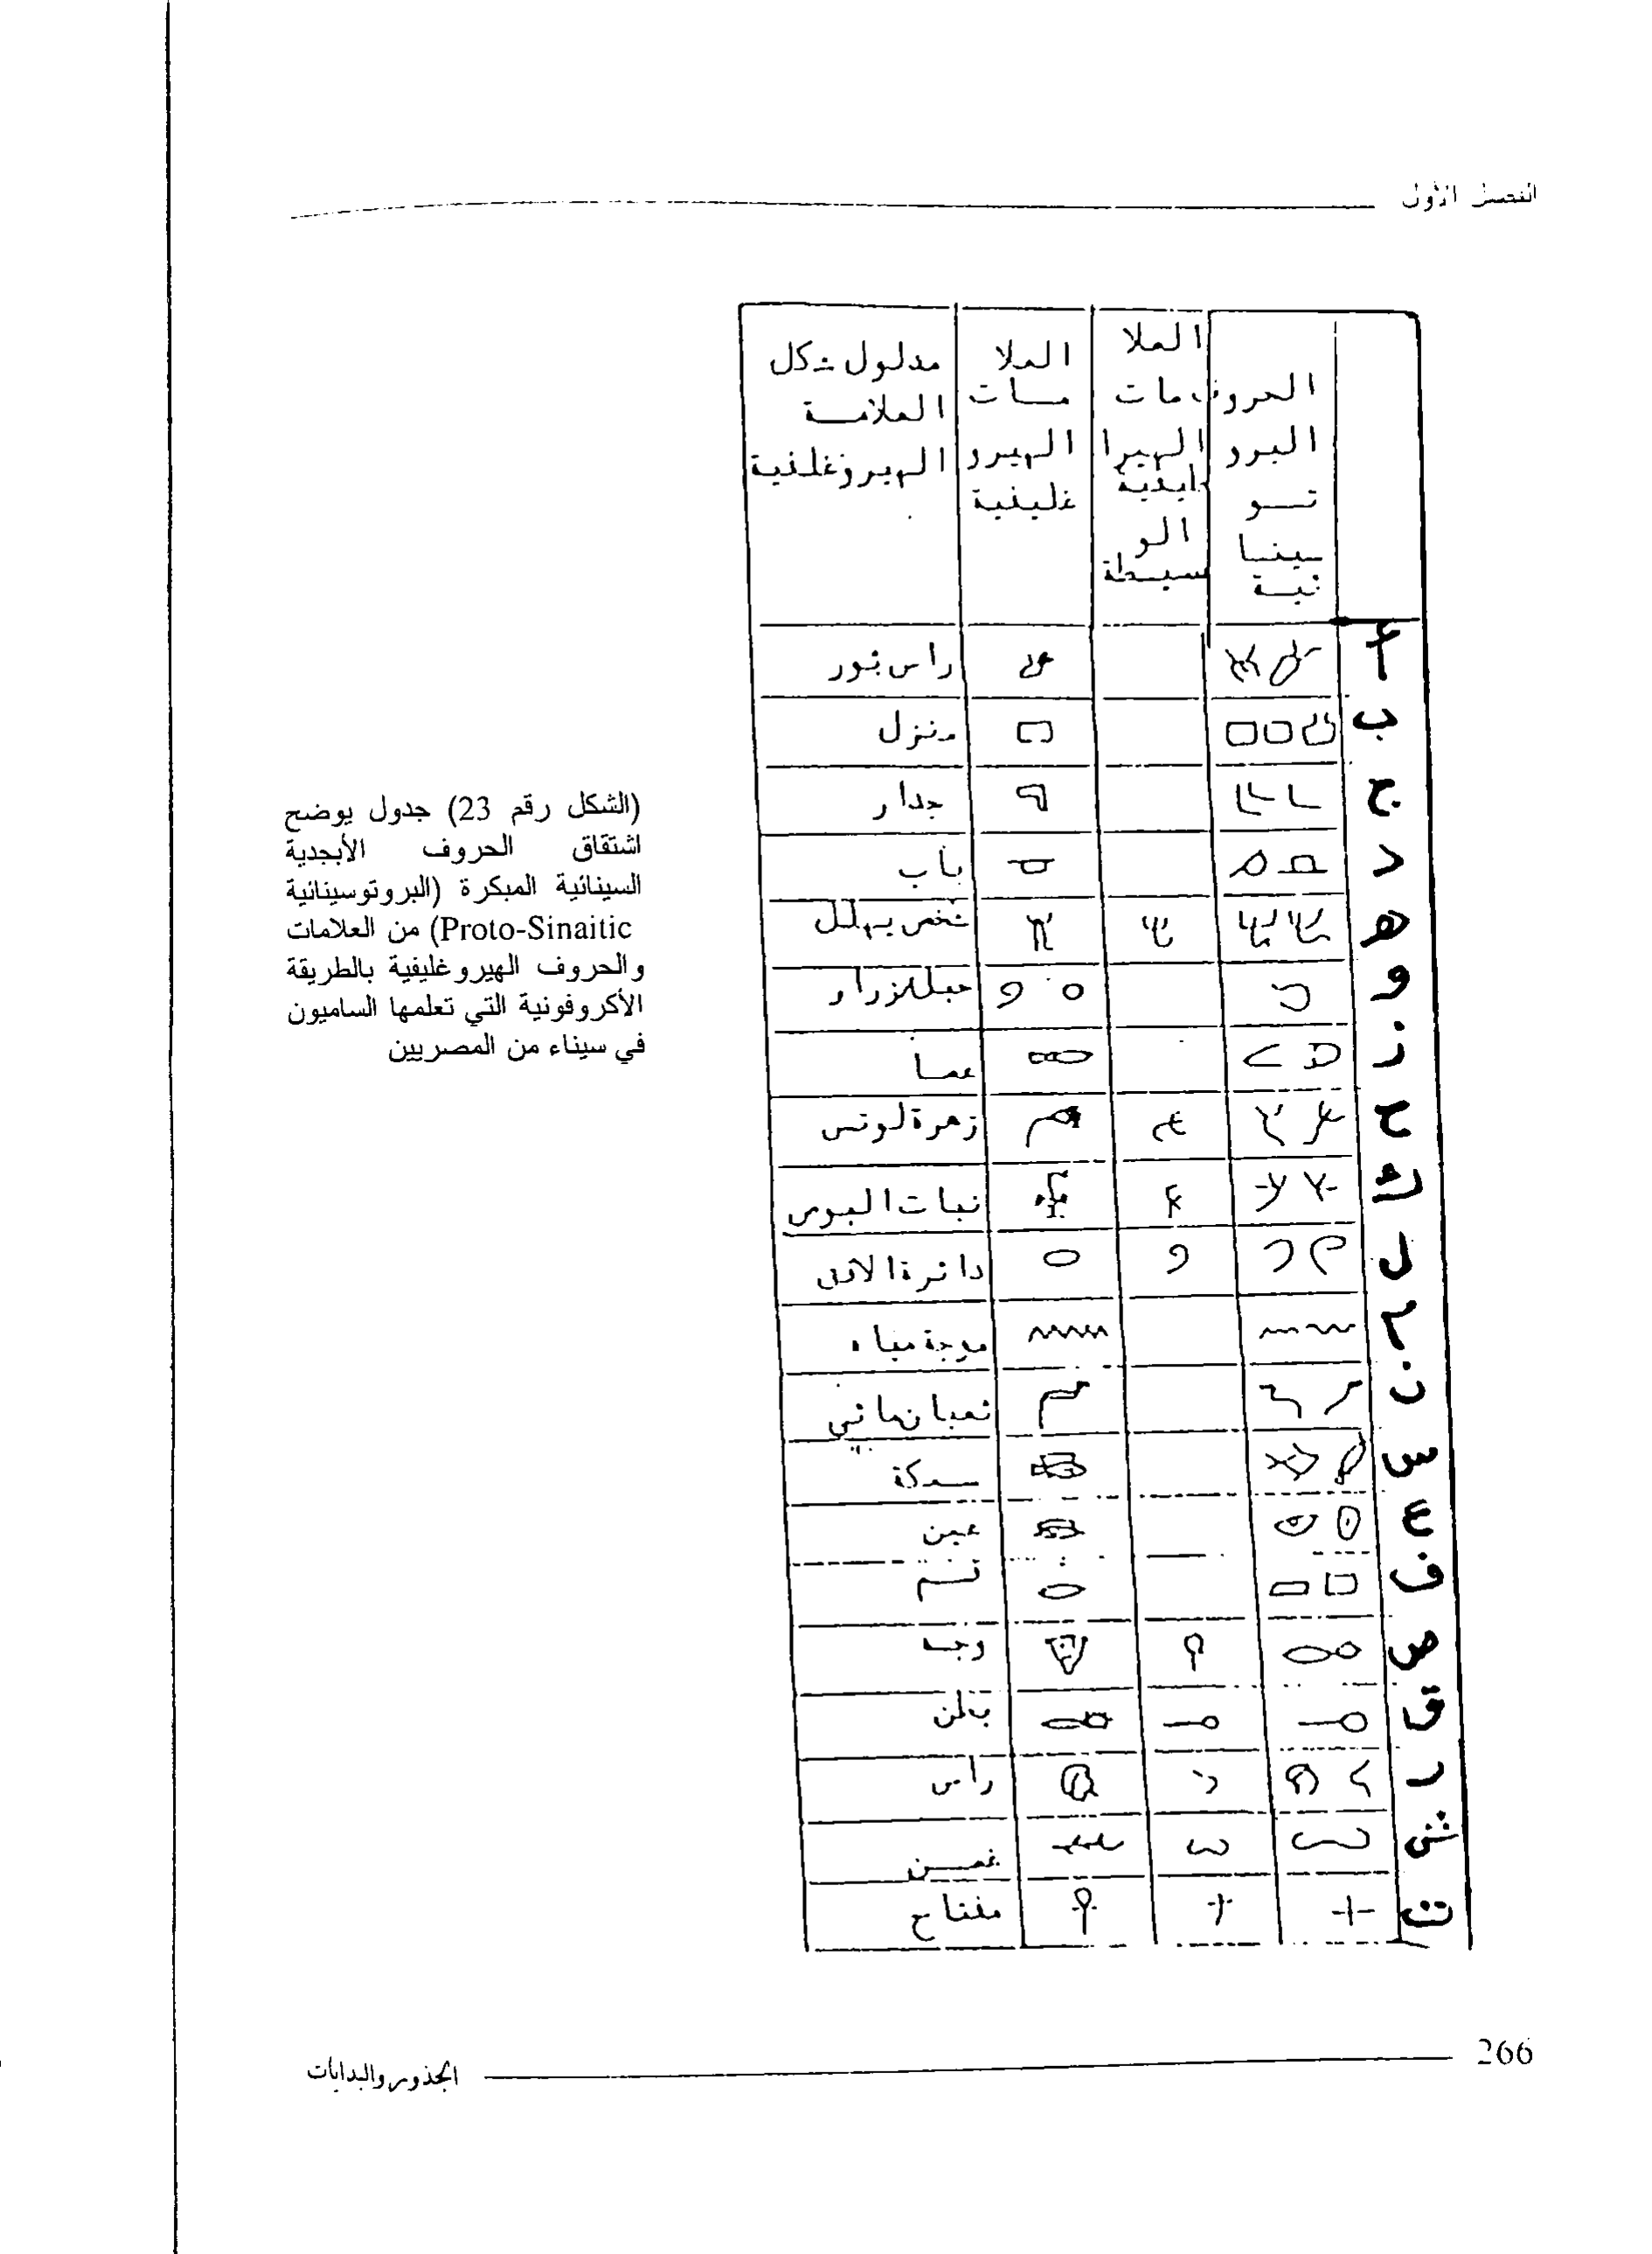 الفصل الأول
الحروف
البرو
تو
سينا
ئية
العلا
مات
الهيرا
الو
سيطة
العلا
مات
الهيرو
غليفية
مدلول شكل
العلامة
الهيروغلفية
أ راس ثور
ب منزل
ج جدار
د باب
هـ شخص يهلل
و
ز عصا
ح زهرة لوتس
ك نبات البوص
ل دائرة الافق
م موجة مياه
ن ثعبان مائي
س سمكة
ع عين
ف فم
ص وجه
ق بطن
ر راس
ش غصن
ت مفتاح
(الشكل رقم 23) جدول يوضح
اشتقاق الحروف الأبجدية
السينائية المبكرة (البروتوسينائية
Proto-Sinaitic) من العلامات
والحروف الهيروغليفية بالطريقة
الأكروفونية التي تعلمها الساميون
في سيناء من المصريين
266
الجذور والبدايات